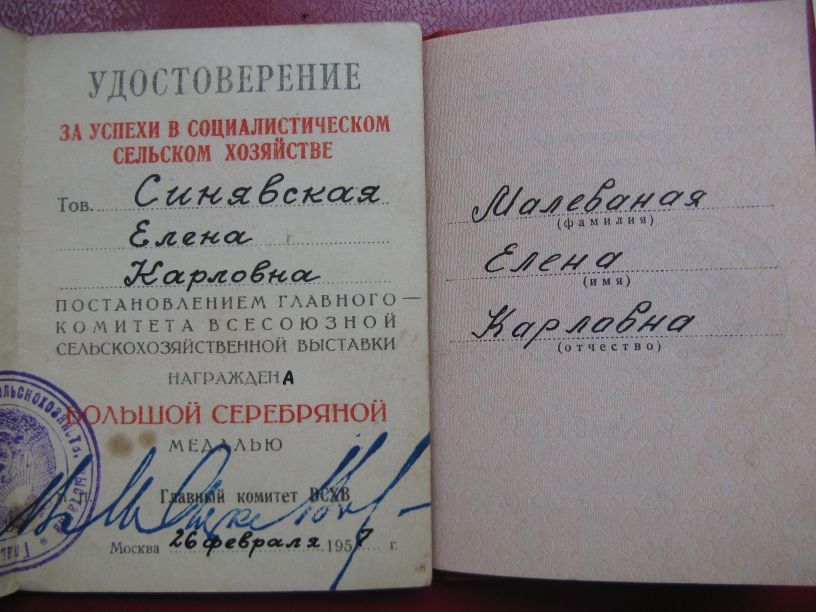 УДОСТОВЕРЕНИЕ
ЗА УСПЕХИ В СОЦИАЛИСТИЧЕСКОМ
СЕЛЬСКОМ ХОЗЯЙСТВЕ
Тов. Синявская
Елена
Карловна
ПОСТАНОВЛЕНИЕМ ГЛАВНОГО
КОМИТЕТА ВСЕСОЮЗНОЙ
СЕЛЬСКОХОЗЯЙСТВЕННОЙ ВЫСТАВКИ
НАГРАЖДЕНА
БОЛЬШОЙ СЕРЕБРЯНОЙ
МЕДАЛЬЮ
Главный комитет ВСХВ
Москва 26 февраля 1957 г.
Малеваная
(фамилия)
Елена
(имя)
Карлавна
(отчество)